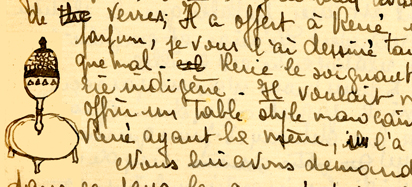 de the verres; Il a offert à René,
parfum, je vous l'ai dessiné tan
que mal. René le soignant
rie indigène. Il voulait
offrir un table style marocain
René ayant la même, il l'a
Nous lui avons demand